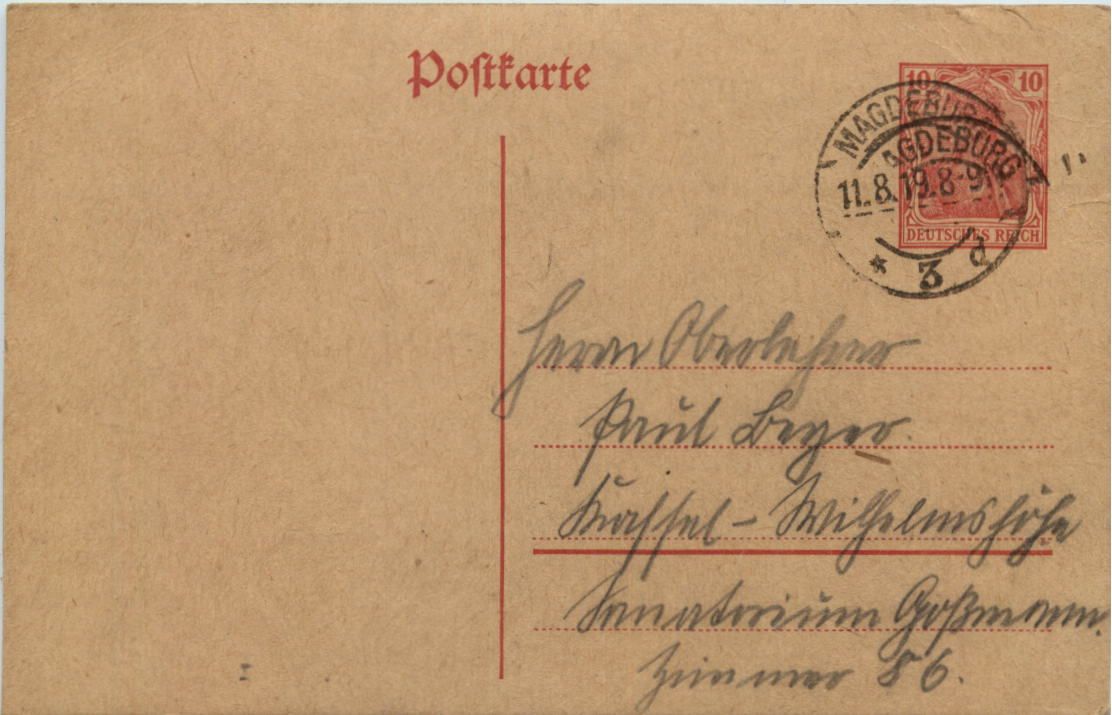 Postkarte
10 10
MAGDEBURG
MAGDEBURG
11.8.19.8-9
* 3 d
DEUTSCHES REICH
Herrn Oberlehrer
Paul Beyer.
Kassel - Wilhelmshöhe
Sanatorium Goßmann.
Zimmer 86.